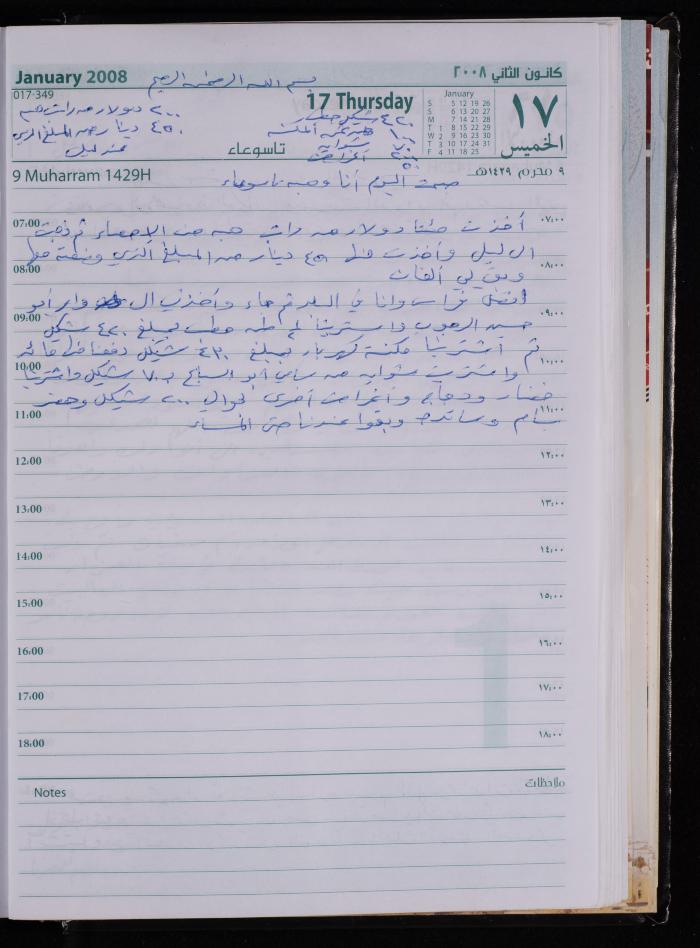 January 2008 بسم الله الرحمن الرحيم كانون الثاني ٢٠٠٨
017-349
٢٠٠ دولار من راتب هبه
٤٥٠ دينار من المبلغ الذي
عند ليل
17 Thursday
٤٢٠ شيكل
٧٠ شوايه
٢٠٠ أغراض
تاسوعاء
January
S 5 12 19 26
S 6 13 20 27
M 7 14 21 28
T 1 8 15 22 29
W 2 9 16 23 30
T 3 10 17 24 31
F 4 11 18 25
١٧
الخميس
9 Muharram 1429H ٩ محرم ١٤٢٩هـ
صمت اليوم أنا وهبه تاسوعاء
07:00 ٠٧:٠٠
أخذت مئتا دولار من راتب هبه من الإحصاء ثم ذهبت
الى ليل وأخذت منها ٤٥٠ دينار من المبلغ الذي وضعته معها
08:00 ٠٨:٠٠
وبقي لي ألفان
وانا في البلد ثم جاء وأخذني الى وابو
09:00 ٠٩:٠٠
حسن واشترينا حطب بمبلغ ٤٢٠ شيكل
ثم اشترينا مكنسة كهرباء بمبلغ ٤٣٠ شيكل دفعنا
10:00 ١٠:٠٠
واشتريت شوايه من أبو السباع بـ ٧٠ شيكل واشترينا
خضار ودجاج وأغراض أخرى حوالي ٢٠٠ شيكل وحضر
11:00 ١١:٠٠
بسام وساندي وبقوا عندنا حتى المساء
12:00 ١٢:٠٠
13:00 ١٣:٠٠
14:00 ١٤:٠٠
15:00 ١٥:٠٠
16:00 ١٦:٠٠
17:00 ١٧:٠٠
18:00 ١٨:٠٠
1
Notes ملاحظات